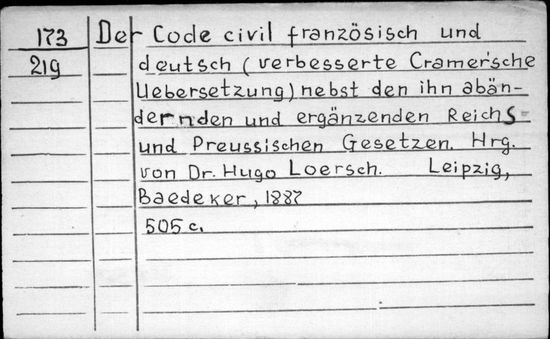 173 Der Code civil französisch und
219 deutsch (verbesserte Cramer'sche
Uebersetzung) nebst den ihn abän-
dernden und ergänzenden Reichs-
und Preussischen Gesetzen. Hrg.
von Dr. Hugo Loersch. Leipzig,
Baedeker, 1887
505 c.